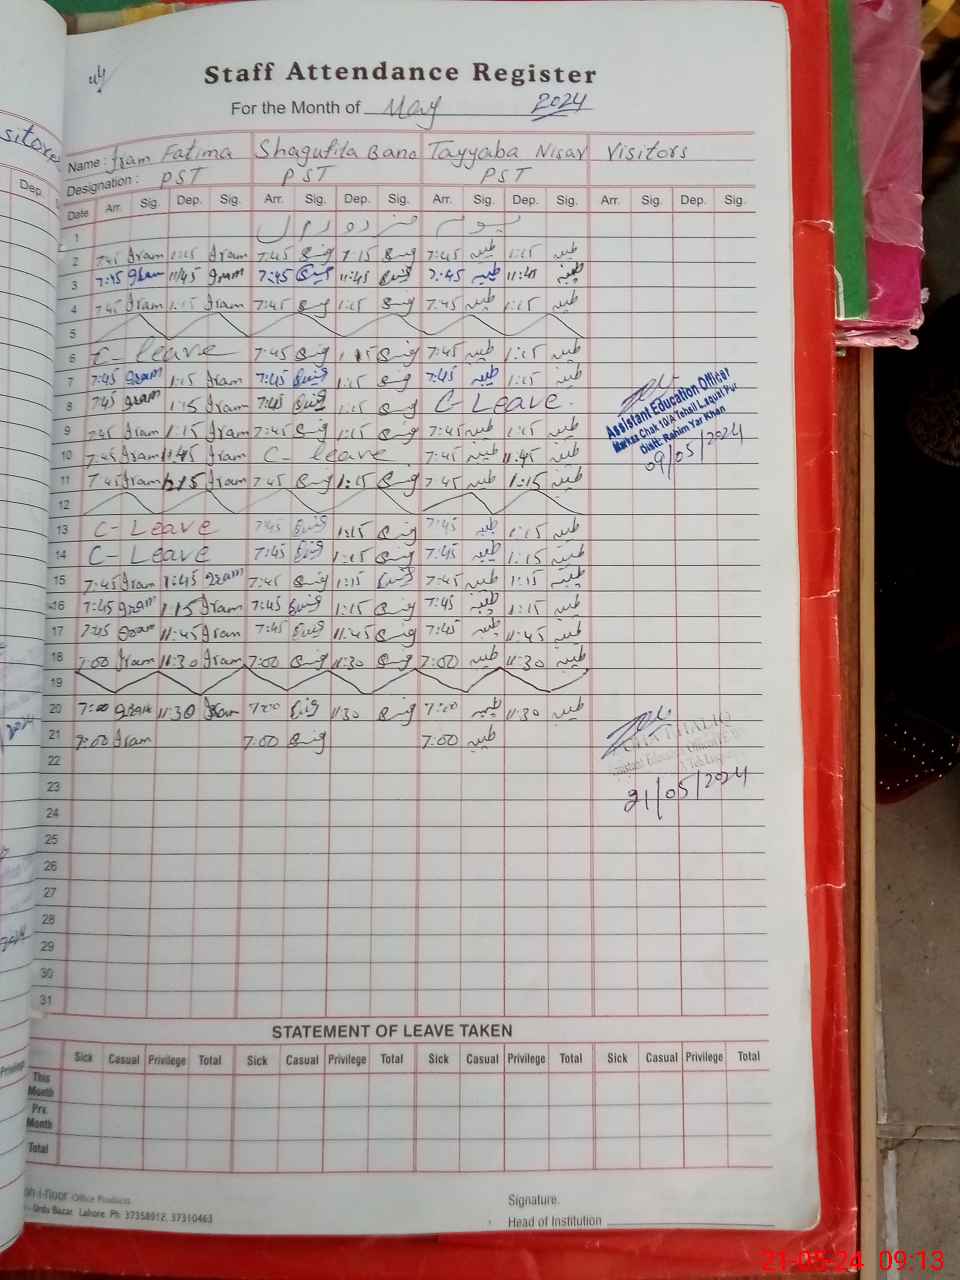 Staff Attendance Register
For the Month of May 2024
sitors
Name : Iram Fatima Shagufta Bano Tayyaba Nisar Visitors
Designation : PST PST PST
Dep.
Date Arr. Sig. Dep. Sig. Arr. Sig. Dep. Sig. Arr. Sig. Dep. Sig. Arr. Sig. Dep. Sig.
1 یوم مزدوراں
2 7:45 Iram 1:15 Iram 7:45 1:15 7:45 طیبہ 1:15 طیبہ
3 7:45 Iram 11:45 Iram 7:45 11:45 7:45 طیبہ 11:45 طیبہ
4 7:45 Iram 1:15 Iram 7:45 1:15 7:45 طیبہ 1:15 طیبہ
5
6 C- leave 7:45 1:15 7:45 طیبہ 1:15 طیبہ
7 7:45 Iram 1:15 Iram 7:45 1:15 7:45 طیبہ 1:15 طیبہ
8 7:45 Iram 1:15 Iram 7:45 1:15 C- Leave.
9 7:45 Iram 1:15 Iram 7:45 1:15 7:45 طیبہ 1:15 طیبہ
10 7:45 Iram 11:45 Iram C- leave 7:45 طیبہ 11:45 طیبہ
11 7:45 Iram 1:15 Iram 7:45 1:15 7:45 طیبہ 1:15 طیبہ
12
Assistant Education Officer
Markaz Chak 10/A Tehsil Liaquat Pur
Distt: Rahim Yar Khan
09/05/2024
13 C- Leave 7:45 1:15 7:45 طیبہ 1:15 طیبہ
14 C- Leave 7:45 1:15 7:45 طیبہ 1:15 طیبہ
15 7:45 Iram 1:45 Iram 7:45 1:15 7:45 طیبہ 1:15 طیبہ
16 7:45 Iram 1:15 Iram 7:45 1:15 7:45 طیبہ 1:15 طیبہ
17 7:45 Iram 11:45 Iram 7:45 11:45 7:45 طیبہ 11:45 طیبہ
18 7:00 Iram 11:30 Iram 7:00 11:30 7:00 طیبہ 11:30 طیبہ
19
20 7:00 Iram 11:30 Iram 7:00 11:30 7:00 طیبہ 11:30 طیبہ
21 7:00 Iram 7:00 7:00 طیبہ
21/05/2024
22
23
24
25
26
27
28
29
30
31
STATEMENT OF LEAVE TAKEN
Sick Casual Privilege Total Sick Casual Privilege Total Sick Casual Privilege Total Sick Casual Privilege Total
This Month
Prv. Month
Total
oh-i-noor Office Products
Urdu Bazar, Lahore. Ph: 37358912, 37310463
Signature.
Head of Institution
21-05-24 09:13